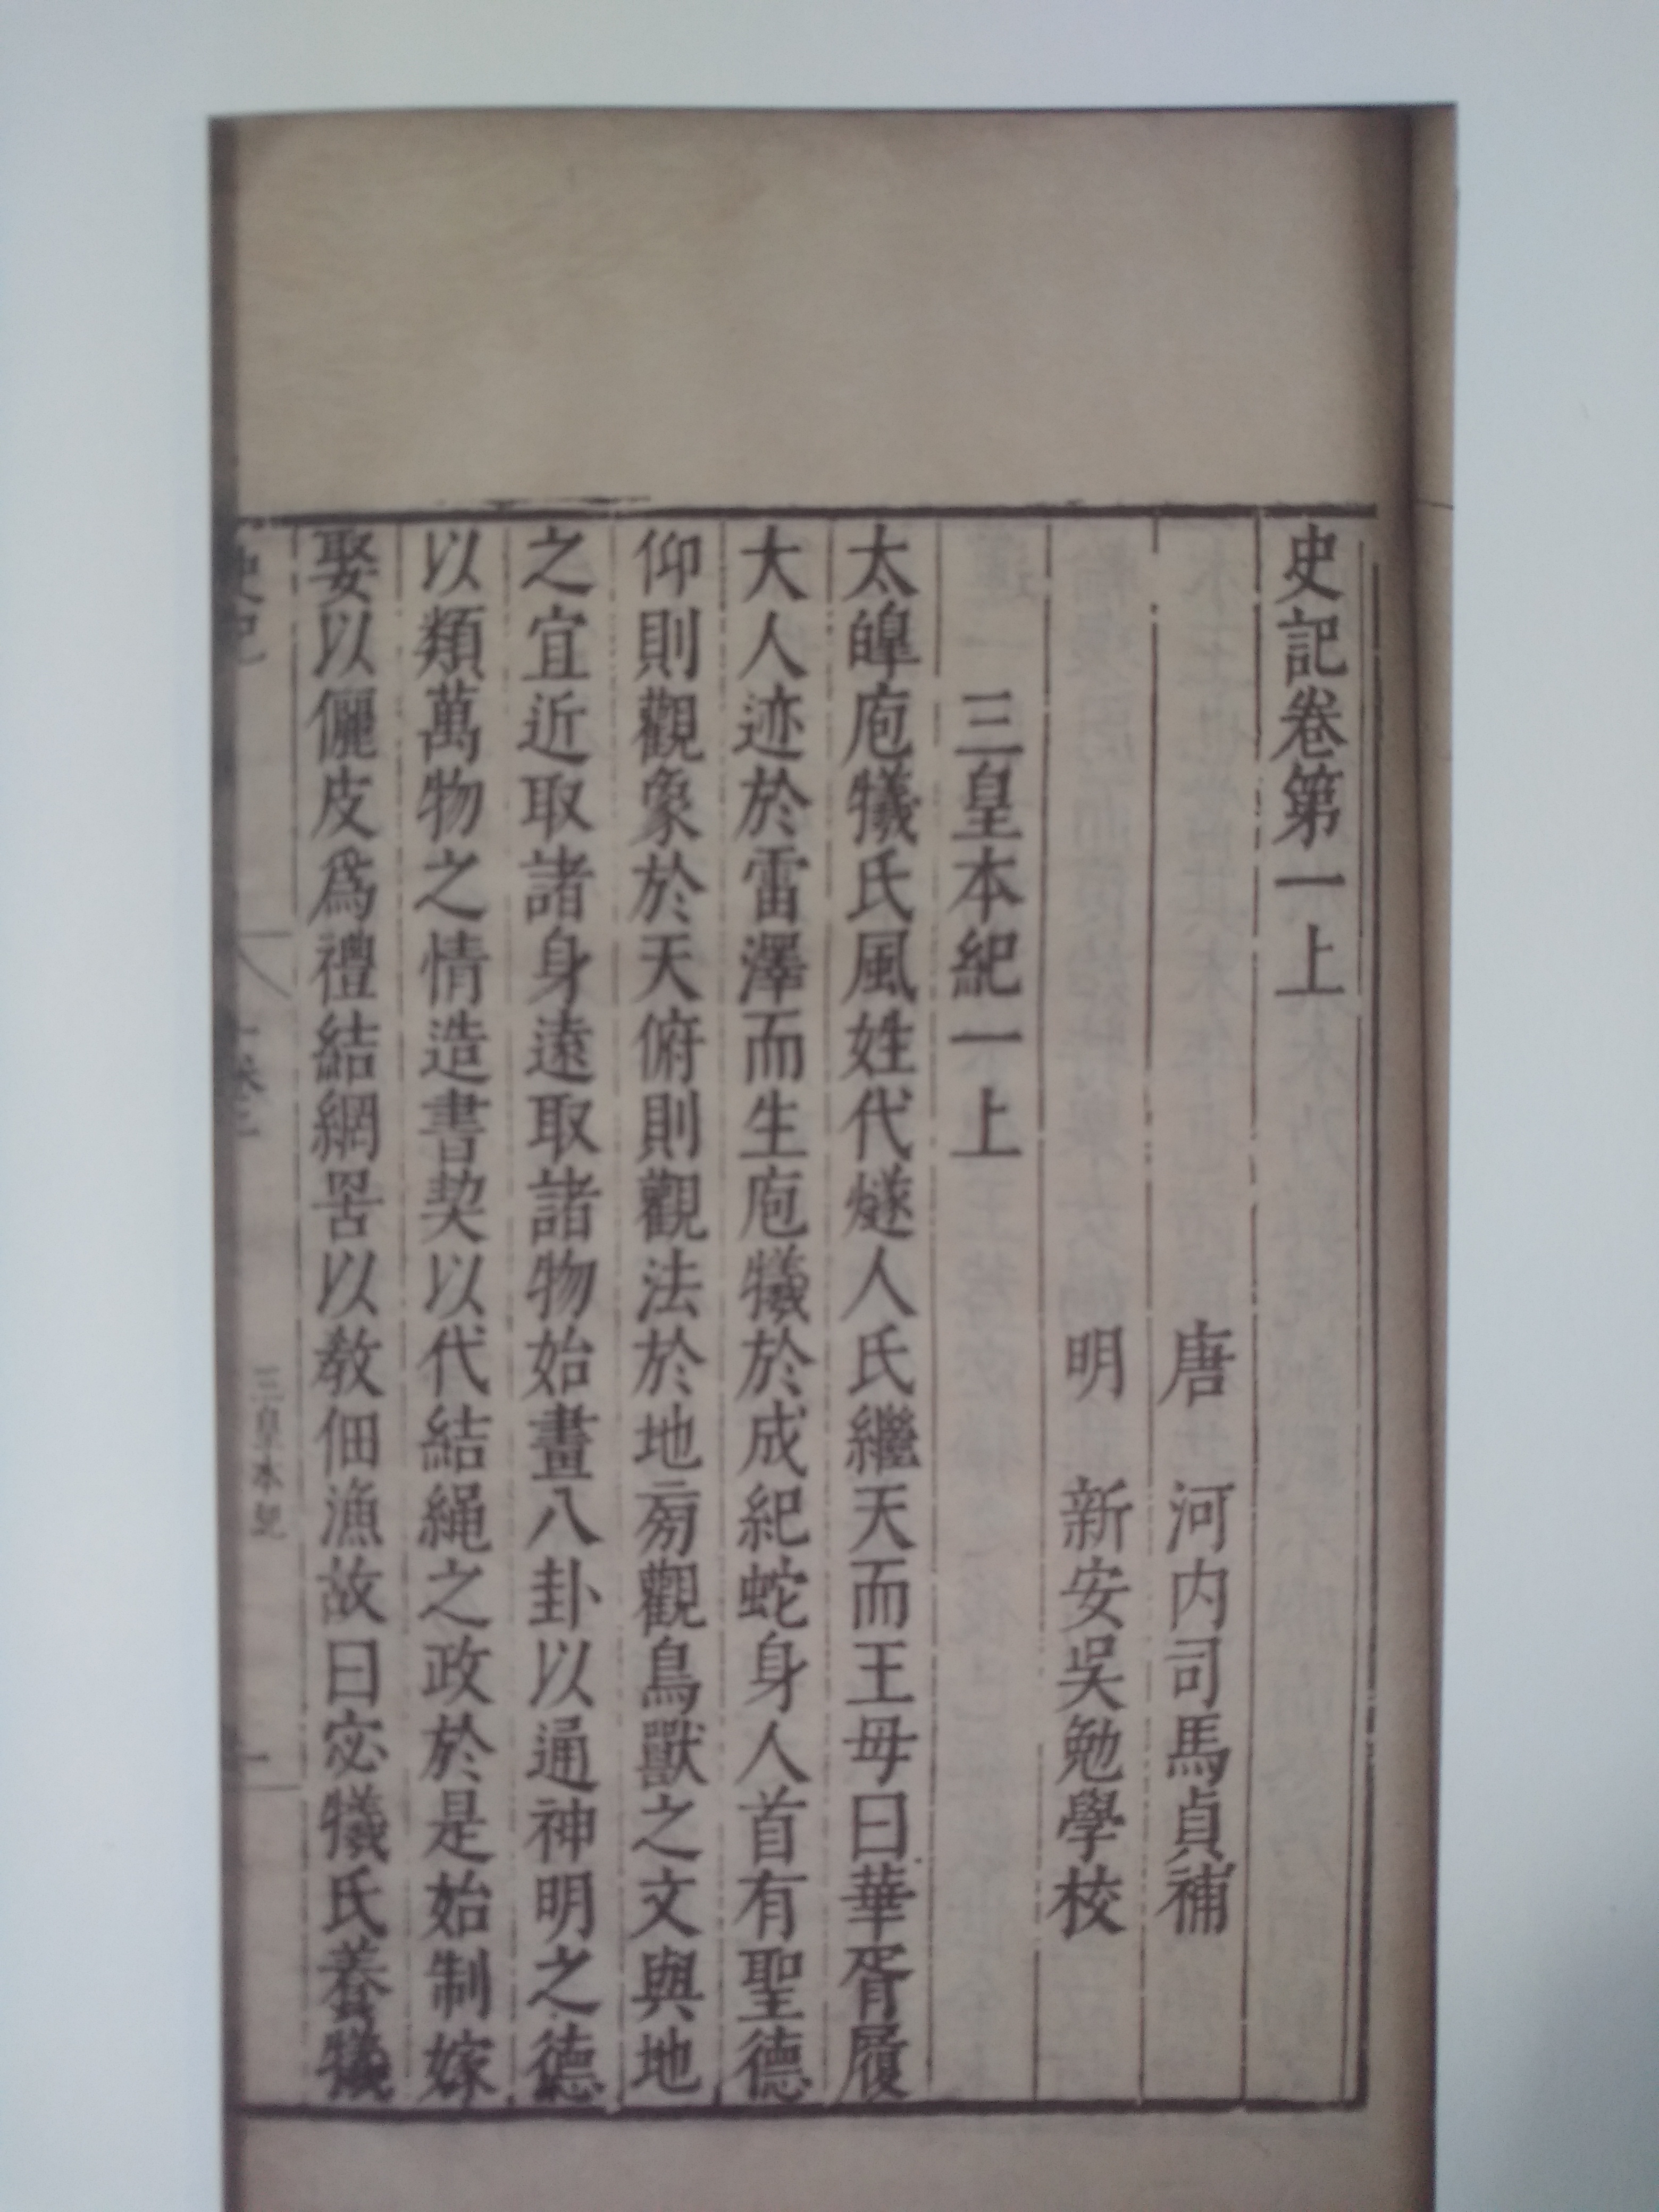 史記卷第一上
唐 河内司馬貞補
明 新安吳勉學校
三皇本紀一上
太皥庖犧氏風姓代燧人氏繼天而王母曰華胥履
大人迹於雷澤而生庖犧於成紀蛇身人首有聖德
仰則觀象於天俯則觀法於地㫄觀鳥獸之文與地
之宜近取諸身遠取諸物始畫八卦以通神明之德
以類萬物之情造書契以代結繩之政於是始制嫁
娶以儷皮爲禮結網罟以教佃漁故曰宓犧氏養犧
史記
三皇本紀